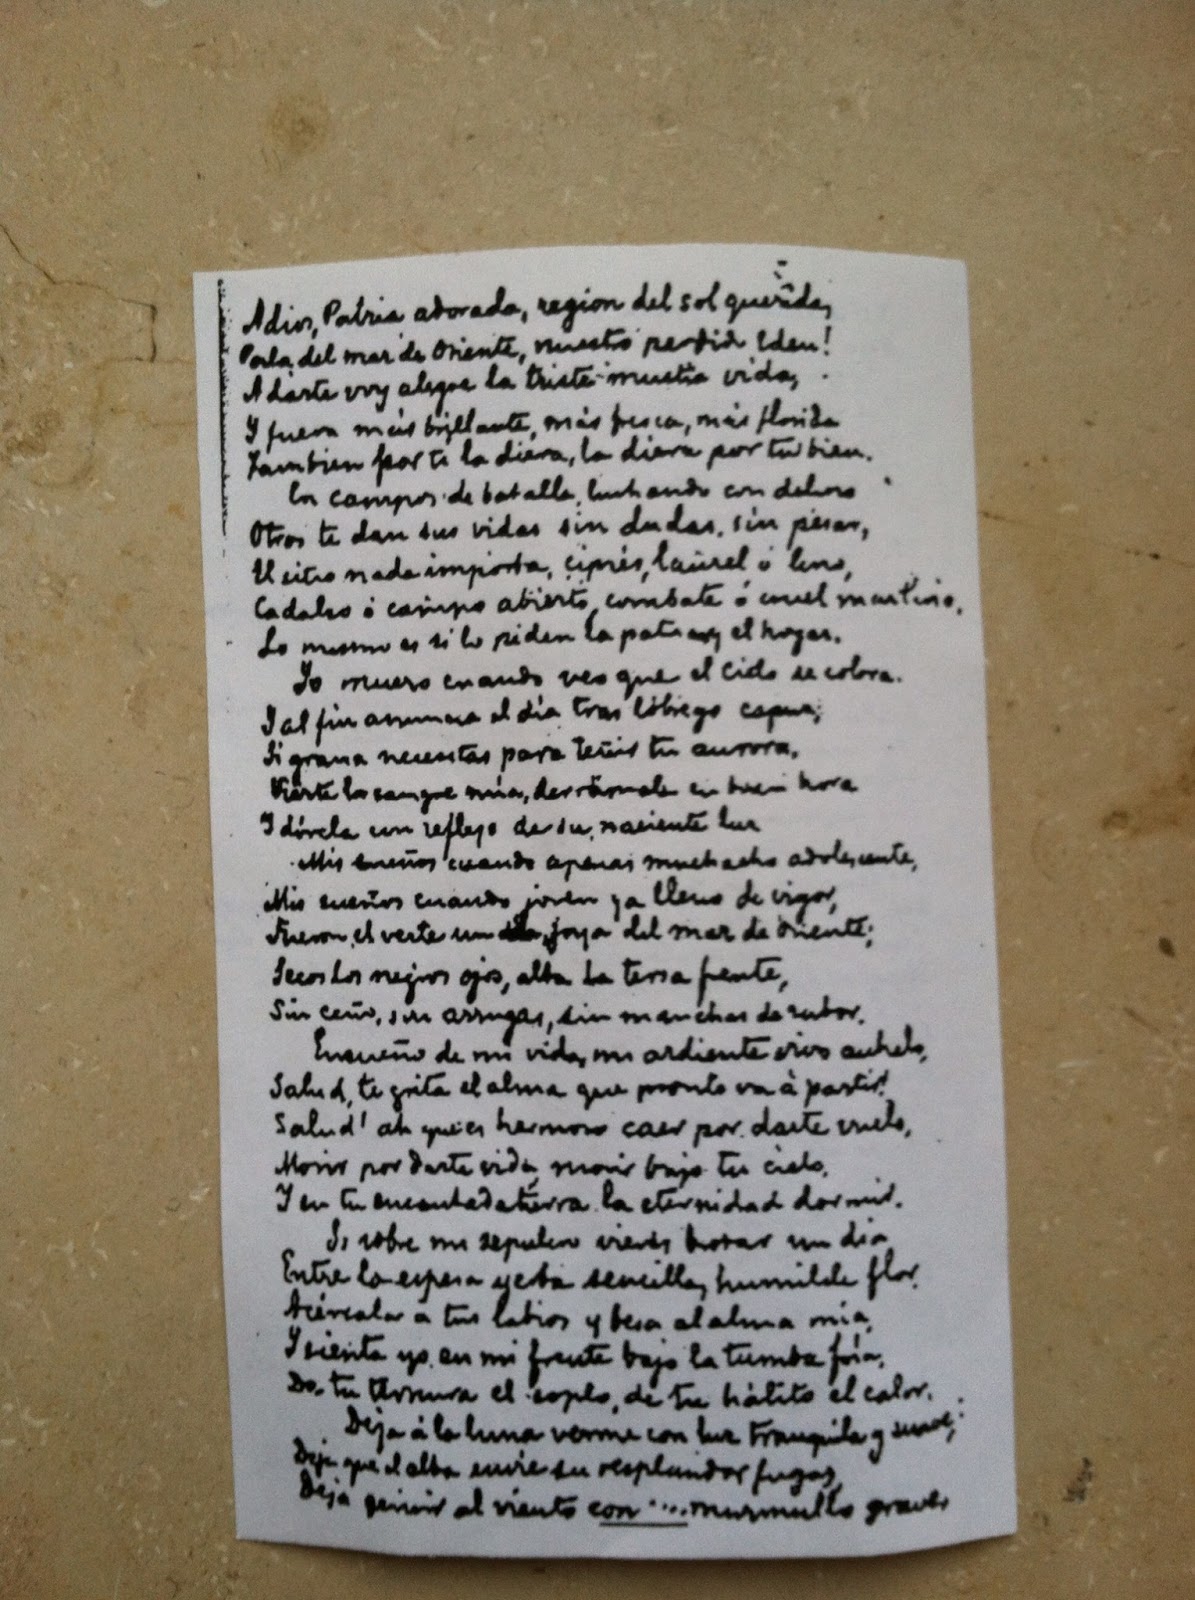 Adios, Patria adorada, region del sol querida,
Perla del mar de Oriente, nuestro perdido Eden!
A darte voy alegre la triste mustia vida,
Y fuera más brillante, más fresca, más florida
Tambien por ti la diera, la diera por tu bien.
En campos de batalla, luchando con delirio
Otros te dan sus vidas sin dudas, sin pesar,
El sitio nada importa, ciprés, laurel ó lirio,
Cadalso ó campo abierto, combate ó cruel martirio,
Lo mismo es si lo piden la patria y el hogar.
Yo muero cuando veo que el cielo se colora.
Y al fin anuncia el día tras lóbrego capuz;
Si grana necesitas para teñir tu aurora,
Vierte la sangre mía, derrámala en buen hora
Y dórela un reflejo de su naciente luz
Mis sueños cuando apenas muchacho adolescente,
Mis sueños cuando joven ya lleno de vigor,
Fueron el verte un dia, joya del mar de Oriente;
Secos los negros ojos, alta la tersa frente,
Sin ceño, sin arrugas, sin manchas de rubor.
Ensueño de mi vida, mi ardiente vivo anhelo,
Salud, te grita el alma que pronto va á partir!
Salud! ah que es hermoso caer por darte vuelo,
Morir por darte vida, morir bajo tu cielo,
Y en tu encantada tierra la eternidad dormir.
Si sobre mi sepulcro vieres brotar un dia
Entre la espesa yerba sencilla, humilde flor,
Acércala a tus labios y besa al alma mía,
Y sienta yo en mi frente bajo la tumba fría,
De tu ternura el soplo, de tu hálito el calor.
Deja á la luna verme con luz tranquila y suave;
Deja que el alba envíe su resplandor fugaz,
Deja gemir al viento con .... murmullo grave